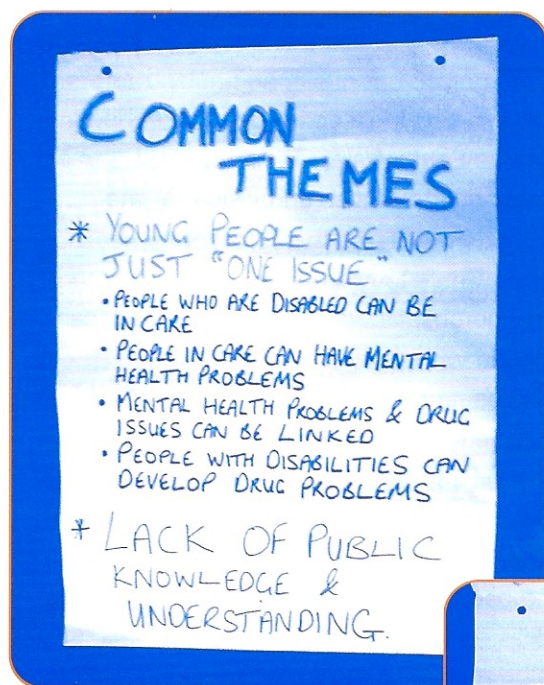 COMMON
THEMES
* YOUNG PEOPLE ARE NOT
JUST "ONE ISSUE"
• PEOPLE WHO ARE DISABLED CAN BE
IN CARE
• PEOPLE IN CARE CAN HAVE MENTAL
HEALTH PROBLEMS
• MENTAL HEALTH PROBLEMS & DRUG
ISSUES CAN BE LINKED
• PEOPLE WITH DISABILITIES CAN
DEVELOP DRUG PROBLEMS
* LACK OF PUBLIC
KNOWLEDGE &
UNDERSTANDING.